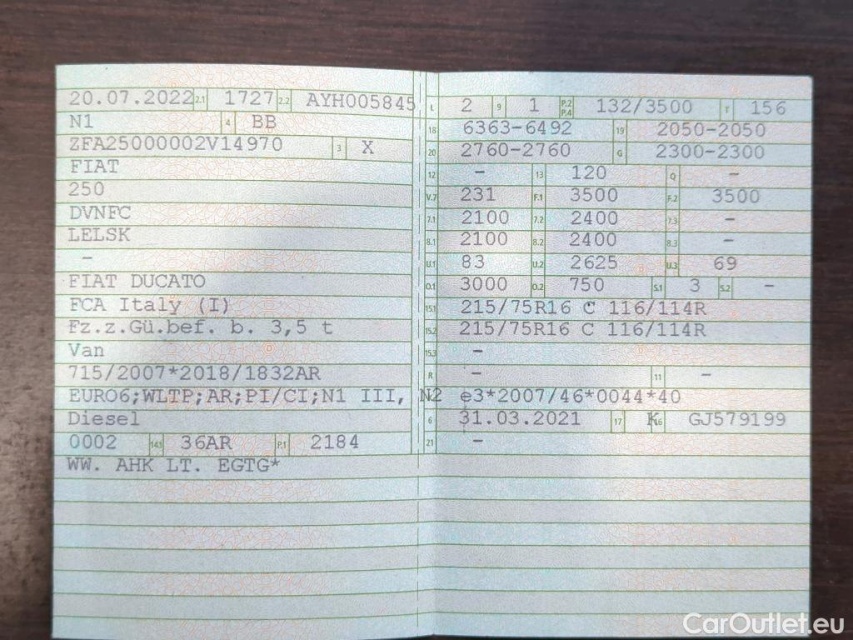 20.07.2022 2.1 1727 2.2 AYH005845
N1 4 BB
ZFA25000002V14970 3 X
FIAT
250
DVNFC
LELSK
–
FIAT DUCATO
FCA Italy (I)
Fz.z.Gü.bef. b. 3,5 t
Van
715/2007*2018/1832AR
EURO6;WLTP;AR;PI/CI;N1 III, N2
Diesel
0002 14.1 36AR P.1 2184
WW. AHK LT. EGTG*
L 2 9 1 P.2 P.4 132/3500 T 156
18 6363-6492 19 2050-2050
20 2760-2760 G 2300-2300
12 – 13 120 Q –
V.7 231 F.1 3500 F.2 3500
7.1 2100 7.2 2400 7.3 –
8.1 2100 8.2 2400 8.3 –
U.1 83 U.2 2625 U.3 69
O.1 3000 O.2 750 S.1 3 S.2 –
15.1 215/75R16 C 116/114R
15.2 215/75R16 C 116/114R
15.3 –
R – 11 –
e3*2007/46*0044*40
6 31.03.2021 17 K 16 GJ579199
21 –
CarOutlet.eu